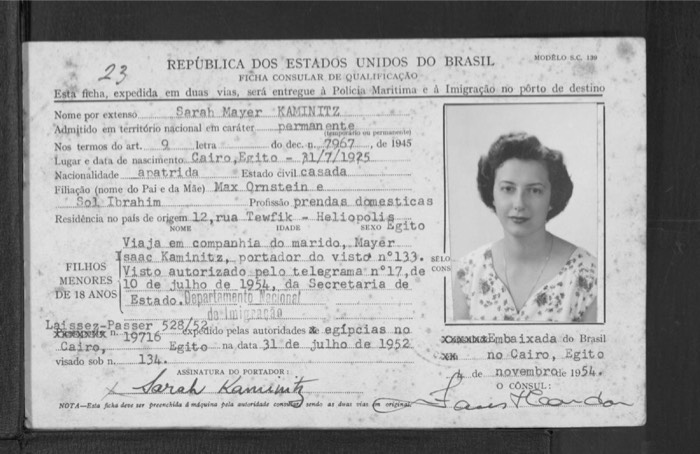 23
REPÚBLICA DOS ESTADOS UNIDOS DO BRASIL
MODÊLO S.C. 139
FICHA CONSULAR DE QUALIFICAÇÃO
Esta ficha, expedida em duas vias, será entregue à Polícia Marítima e à Imigração no pôrto de destino
Nome por extenso Sarah Mayer KAMINITZ
Admitido em território nacional em caráter permanente
(temporário ou permanente)
Nos termos do art. 9 letra do dec. n. 7967, de 1945
Lugar e data de nascimento Cairo, Egito - 31/7/1925
Nacionalidade apatrida Estado civil casada
Filiação (nome do Pai e da Mãe) Max Ornstein e
Sol Ibrahim Profissão prendas domesticas
Residência no país de origem 12, rua Tewfik - Heliopolis
NOME IDADE SEXO Egito
FILHOS MENORES DE 18 ANOS
Viaja em companhia do marido, Mayer
Isaac Kaminitz, portador do visto nº133.
Visto autorizado pelo telegrama nº17, de
10 de julho de 1954, da Secretaria de
Estado. Departamento Nacional
de Imigração
SELO
CONS
Laissez-Passer 528/52
xxxxxxx n. 19716 expedido pelas autoridades x egípcias no
Cairo, Egito na data 31 de julho de 1952
visado sob n. 134.
ASSINATURA DO PORTADOR:
x Sarah Kaminitz
NOTA—Esta ficha deve ser preenchida à máquina pela autoridade consular, sendo as duas vias em original.
xxxxxxx Embaixada do Brasil
xx no Cairo, Egito
4 de novembro de 1954.
O CÔNSUL: